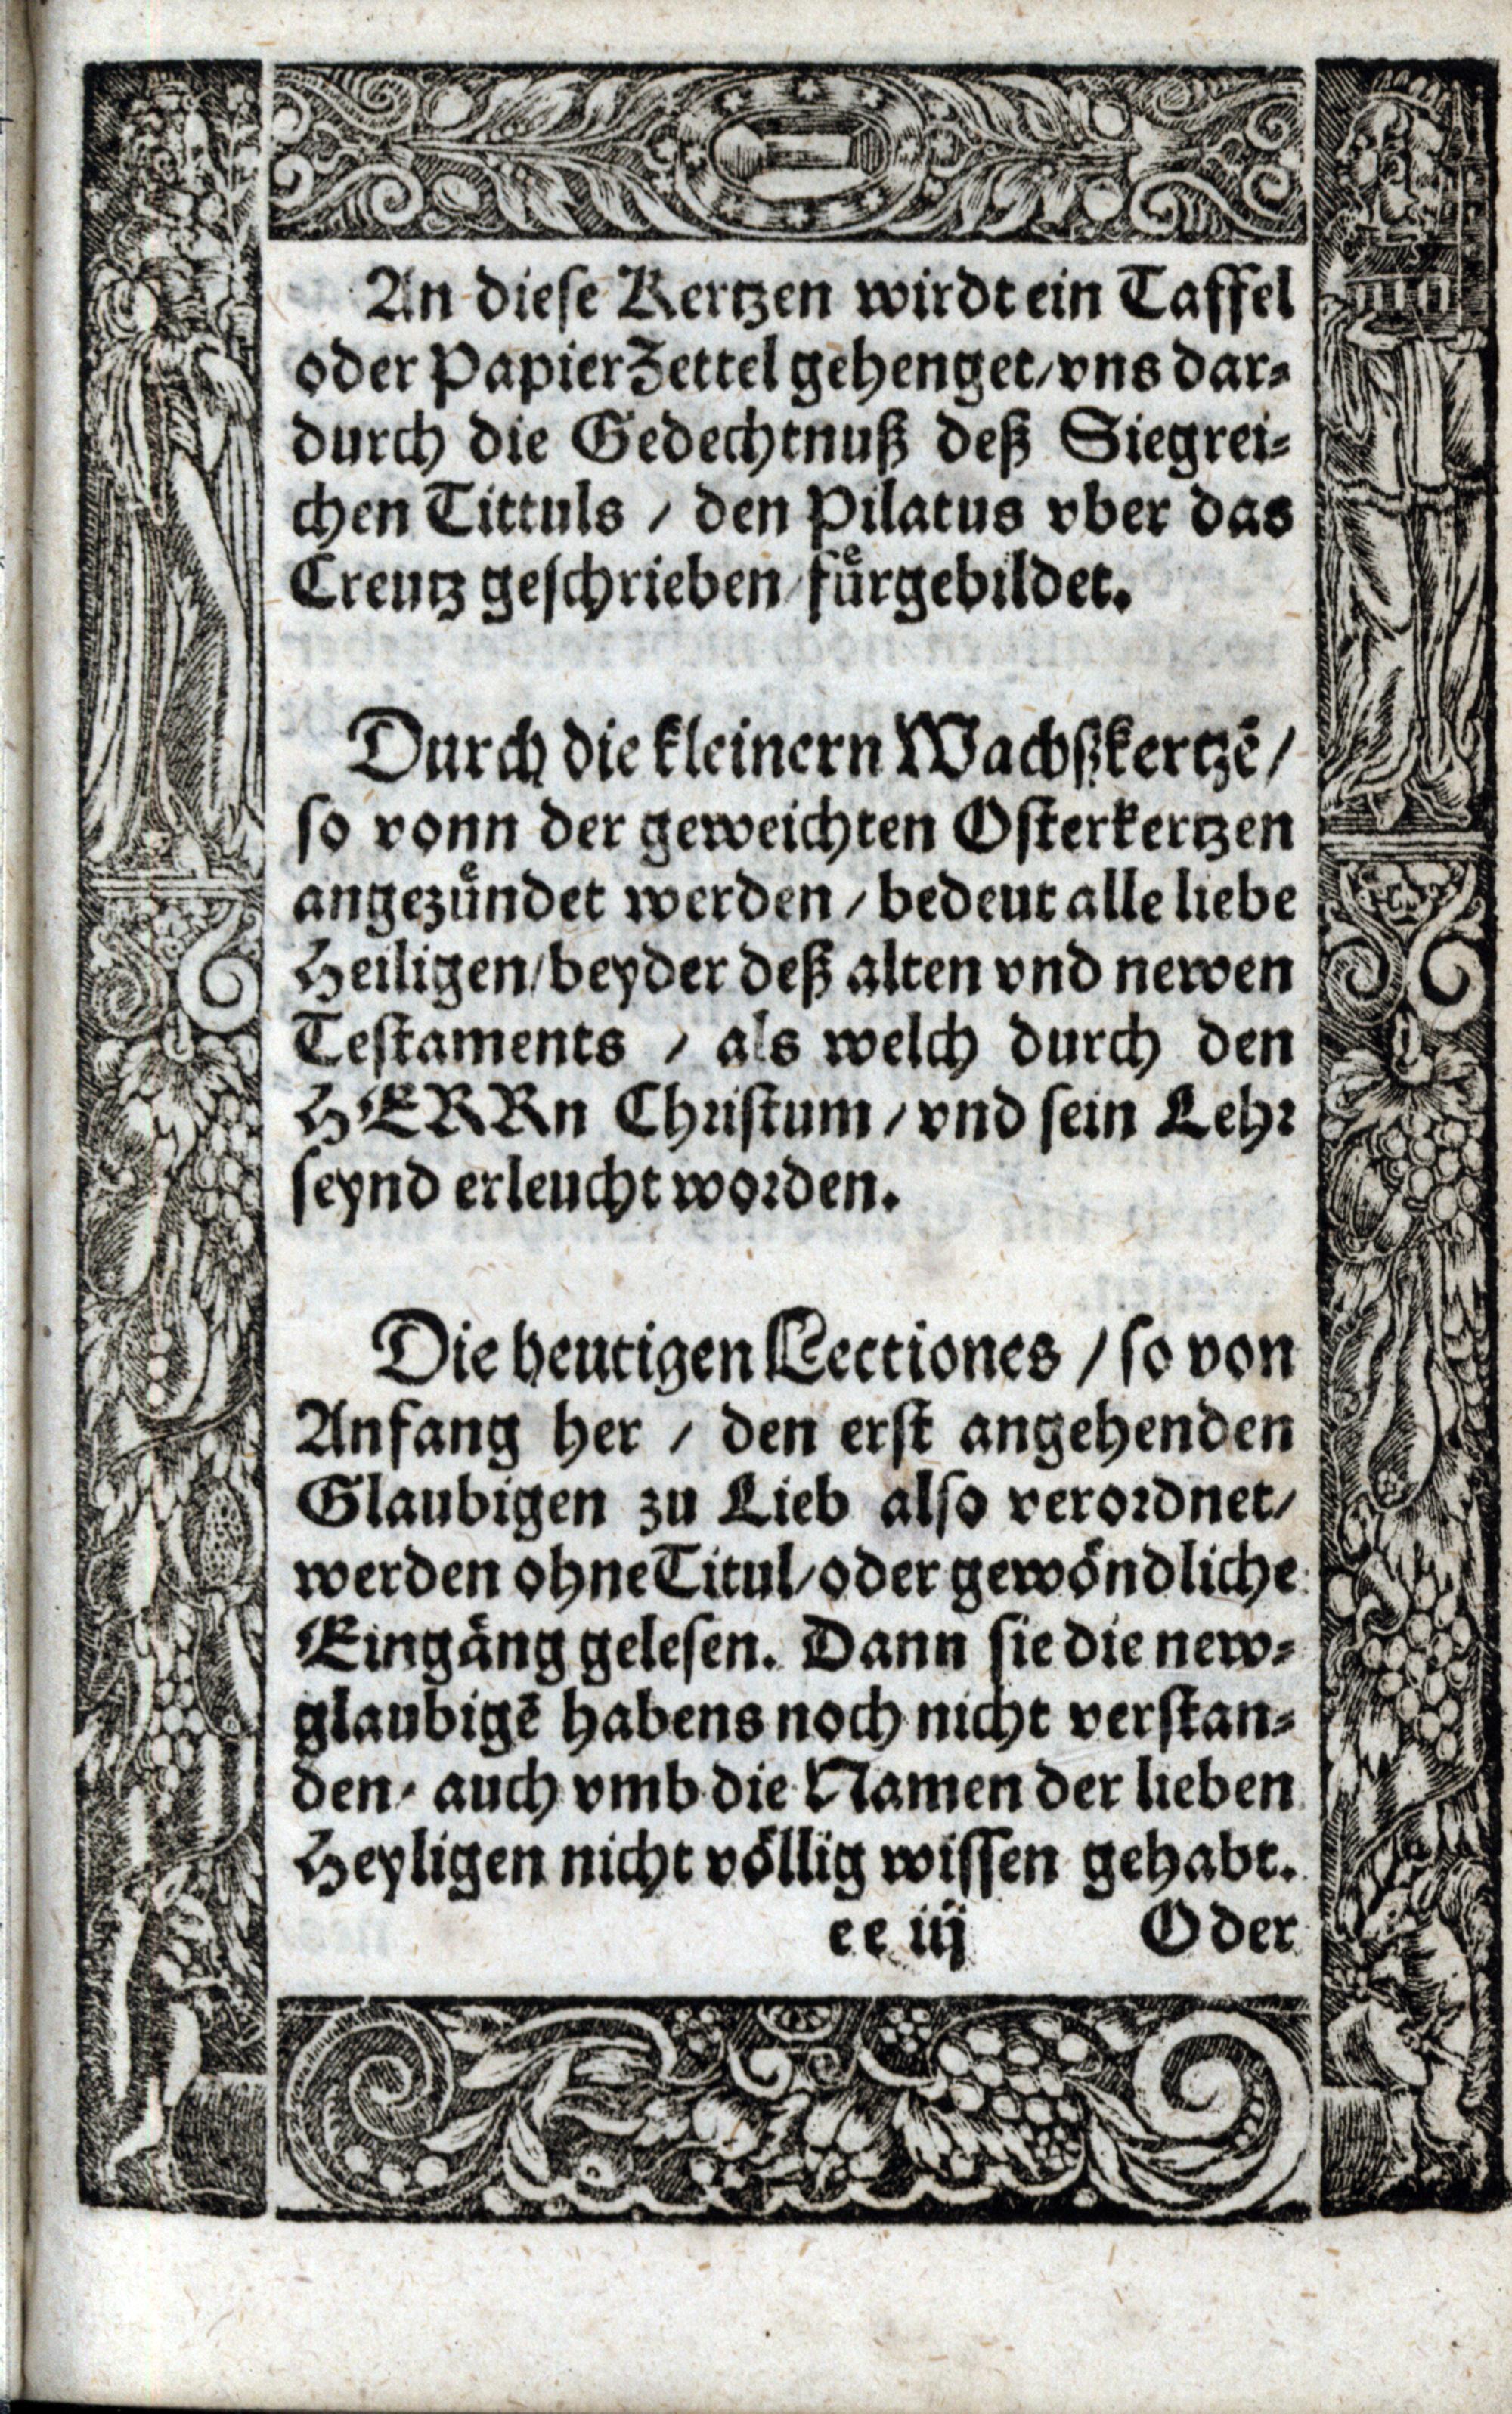 An diese Kertzen wirdt ein Taffel
oder Papier Zettel gehenget/ vns dar⸗
durch die Gedechtnuß deß Siegrei⸗
chen Tittuls / den Pilatus vber das
Creutz geschrieben fuͤrgebildet.
Durch die kleinern Wachßkertzē/
so vonn der geweichten Osterkertzen
angezuͤndet werden / bedeut alle liebe
Heiligen/ beyder deß alten vnd newen
Testaments / als welch durch den
HERRn Christum / vnd sein Lehr
seynd erleucht worden.
Die heutigen Lectiones / so von
Anfang her / den erst angehenden
Glaubigen zu Lieb also verordnet/
werden ohne Titul/ oder gewoͤndliche
Eingaͤng gelesen. Dann sie die new⸗
glaubigē habens noch nicht verstan⸗
den/ auch vmb die Namen der lieben
Heyligen nicht voͤllig wissen gehabt.
ee iij Oder